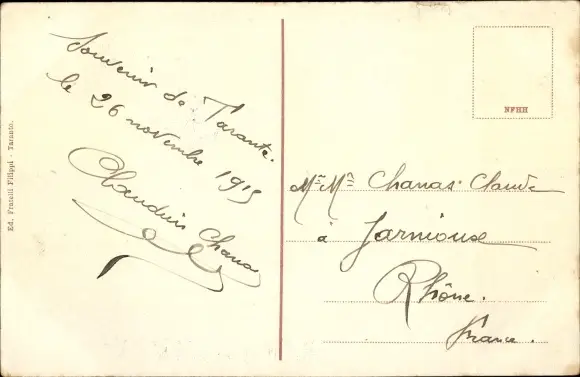 Souvenir de Tarante.
le 26 novembre 1915
Claudius Chanas
Ed. Fratelli Filippi - Taranto.
NFHH
Mr Me Chanas Claude
à Jarnioux
Rhône.
France.